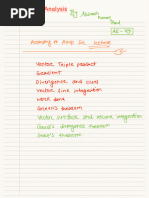 Analysis
By Abinash
Kumar
AE - 49
According to Anup Sir lecture
Vector Triple product
Gradient
Divergence and curl
Vector line integration
Work done
Green's theorem
Vector surface and volume integration
Gauss's divergence theorem
Stoke's theorem